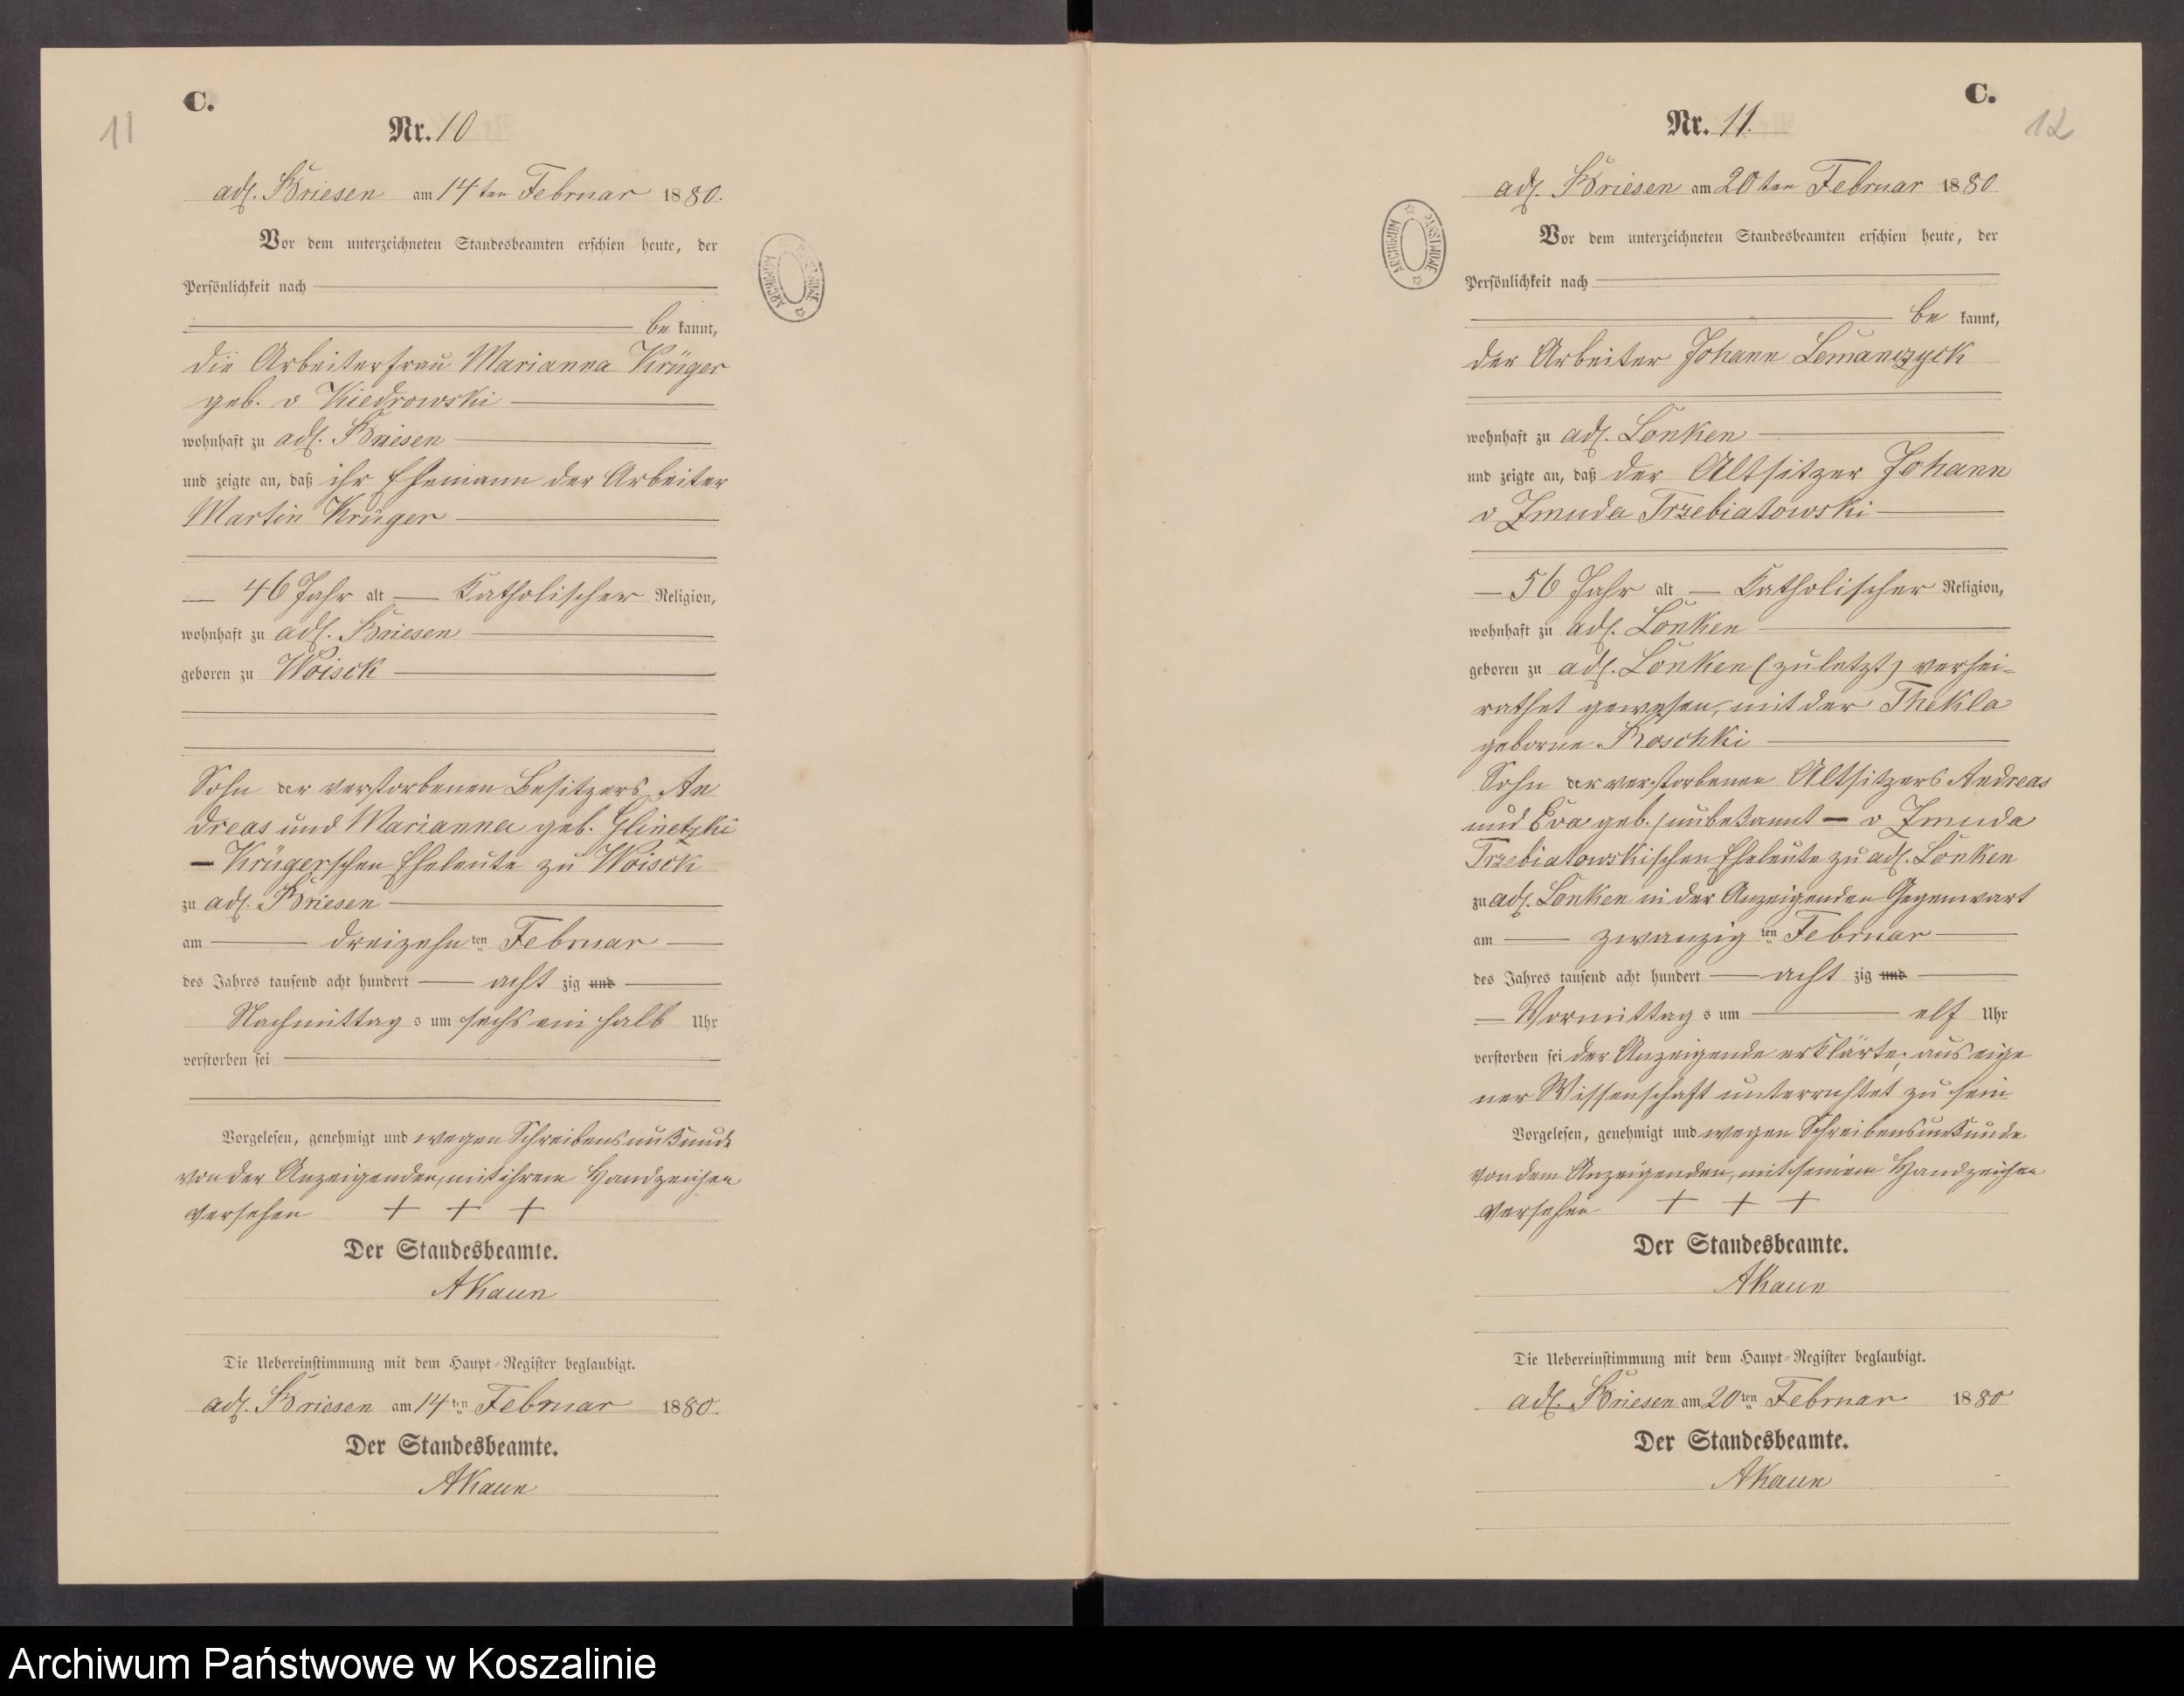 11
C.
Nr. 10
adl. Briesen am 14ten Februar 1880.
Vor dem unterzeichneten Standesbeamten erschien heute, der
Persönlichkeit nach
be kannt,
die Arbeiterfrau Marianna Krüger
geb. v Kiedrowski
wohnhaft zu adl. Briesen
und zeigte an, daß ihr Ehemann der Arbeiter
Martin Krüger
46 Jahr alt Katholischer Religion,
wohnhaft zu adl. Briesen
geboren zu Woisck
Sohn der verstorbenen Besitzers An
dreas und Marianna geb. Glinetzki
– Krügerschen Eheleute zu Woisck
zu adl. Briesen
am dreizehnten Februar
des Jahres tausend acht hundert acht zig und
Nachmittag s um sechs ein halb Uhr
verstorben sei
Vorgelesen, genehmigt und wegen Schreibensunkunde
von der Anzeigenden, mit ihrem Handzeichen
versehen + + +
Der Standesbeamte.
AKaun
Die Uebereinstimmung mit dem Haupt-Register beglaubigt.
adl. Briesen am 14ten Februar 1880.
Der Standesbeamte.
AKaun
ARCHIWUM PAŃSTWOWE
C.
12
Nr. 11.
adl. Briesen am 20ten Februar 1880
Vor dem unterzeichneten Standesbeamten erschien heute, der
Persönlichkeit nach
be kannt,
der Arbeiter Johann Lemanczyck
wohnhaft zu adl. Lonken
und zeigte an, daß der Altsitzer Johann
v Zmuda Trzebiatowski
56 Jahr alt Katholischer Religion,
wohnhaft zu adl. Lonken
geboren zu adl. Lonken (zuletzt) verhei-
rathet gewesen, mit der Thekla
geborne Roschki
Sohn der verstorbenen Altsitzers Andreas
und Eva geb. / unbekannt – v Zmuda
Trzebiatowskischen Eheleute zu adl. Lonken
zu adl. Lonken in der Anzeigenden Gegenwart
am zwanzigten Februar
des Jahres tausend acht hundert acht zig und
Vormittag s um elf Uhr
verstorben sei der Anzeigende erklärte, aus eige
ner Wissenschaft unterrichtet zu sein
Vorgelesen, genehmigt und wegen Schreibensunkunde
von dem Anzeigenden, mit seinem Handzeichen
versehen + + +
Der Standesbeamte.
AKaun
Die Uebereinstimmung mit dem Haupt-Register beglaubigt.
adl. Briesen am 20ten Februar 1880
Der Standesbeamte.
AKaun
ARCHIWUM PAŃSTWOWE
Archiwum Państwowe w Koszalinie